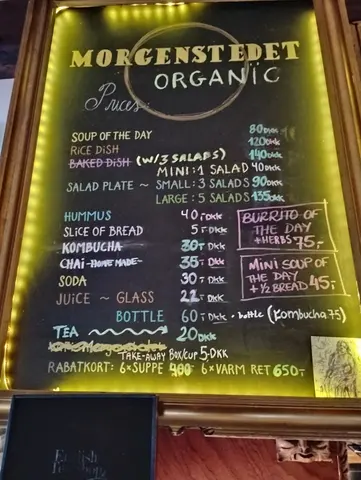 MORGENSTEDET
ORGANIC
Prices:
SOUP OF THE DAY 80 DKK
RICE DISH 120 DKK
BAKED DISH (W/3 SALADS) 140 DKK
MINI: 1 SALAD 40 DKK
SALAD PLATE ~ SMALL: 3 SALADS 90 DKK
LARGE: 5 SALADS 135 DKK
HUMMUS 40 DKK
SLICE OF BREAD 5 DKK
KOMBUCHA 30 DKK
CHAI -HOME MADE- 35 DKK
SODA 30 DKK
JUICE ~ GLASS 22 DKK
BOTTLE 60 DKK • bottle (Kombucha 75)
TEA 20 DKK
TAKE-AWAY BOX/CUP 5,-DKK
RABATKORT: 6xSUPPE 400- 6xVARM RET 650,-
BURRITO OF
THE DAY
+HERBS 75,-
MINI SOUP OF
THE DAY
+ ½ BREAD 45,-